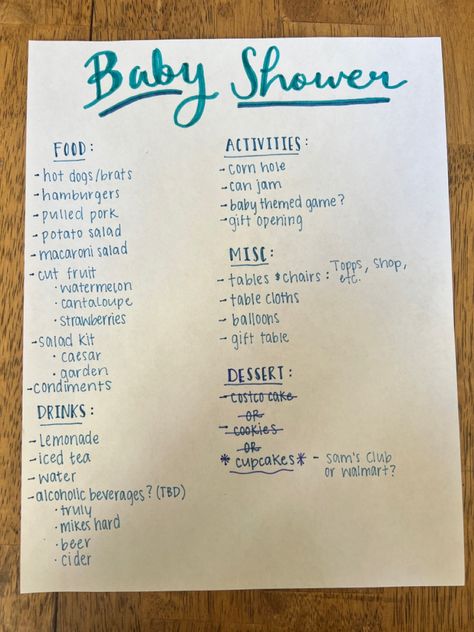 Baby Shower
FOOD:
- hot dogs/brats
- hamburgers
- pulled pork
- potato salad
- macaroni salad
- cut fruit
• watermelon
• cantaloupe
• strawberries
- salad kit
• caesar
• garden
- condiments
DRINKS:
- lemonade
- iced tea
- water
- alcoholic beverages? (TBD)
• truly
• mikes hard
• beer
• cider
ACTIVITIES:
- corn hole
- can jam
- baby themed game?
- gift opening
MISC:
- tables & chairs: Topps, Shop,
etc.
- table cloths
- balloons
- gift table
DESSERT:
- costco cake
OR
- cookies
OR
* cupcakes* - sam's club
or walmart?